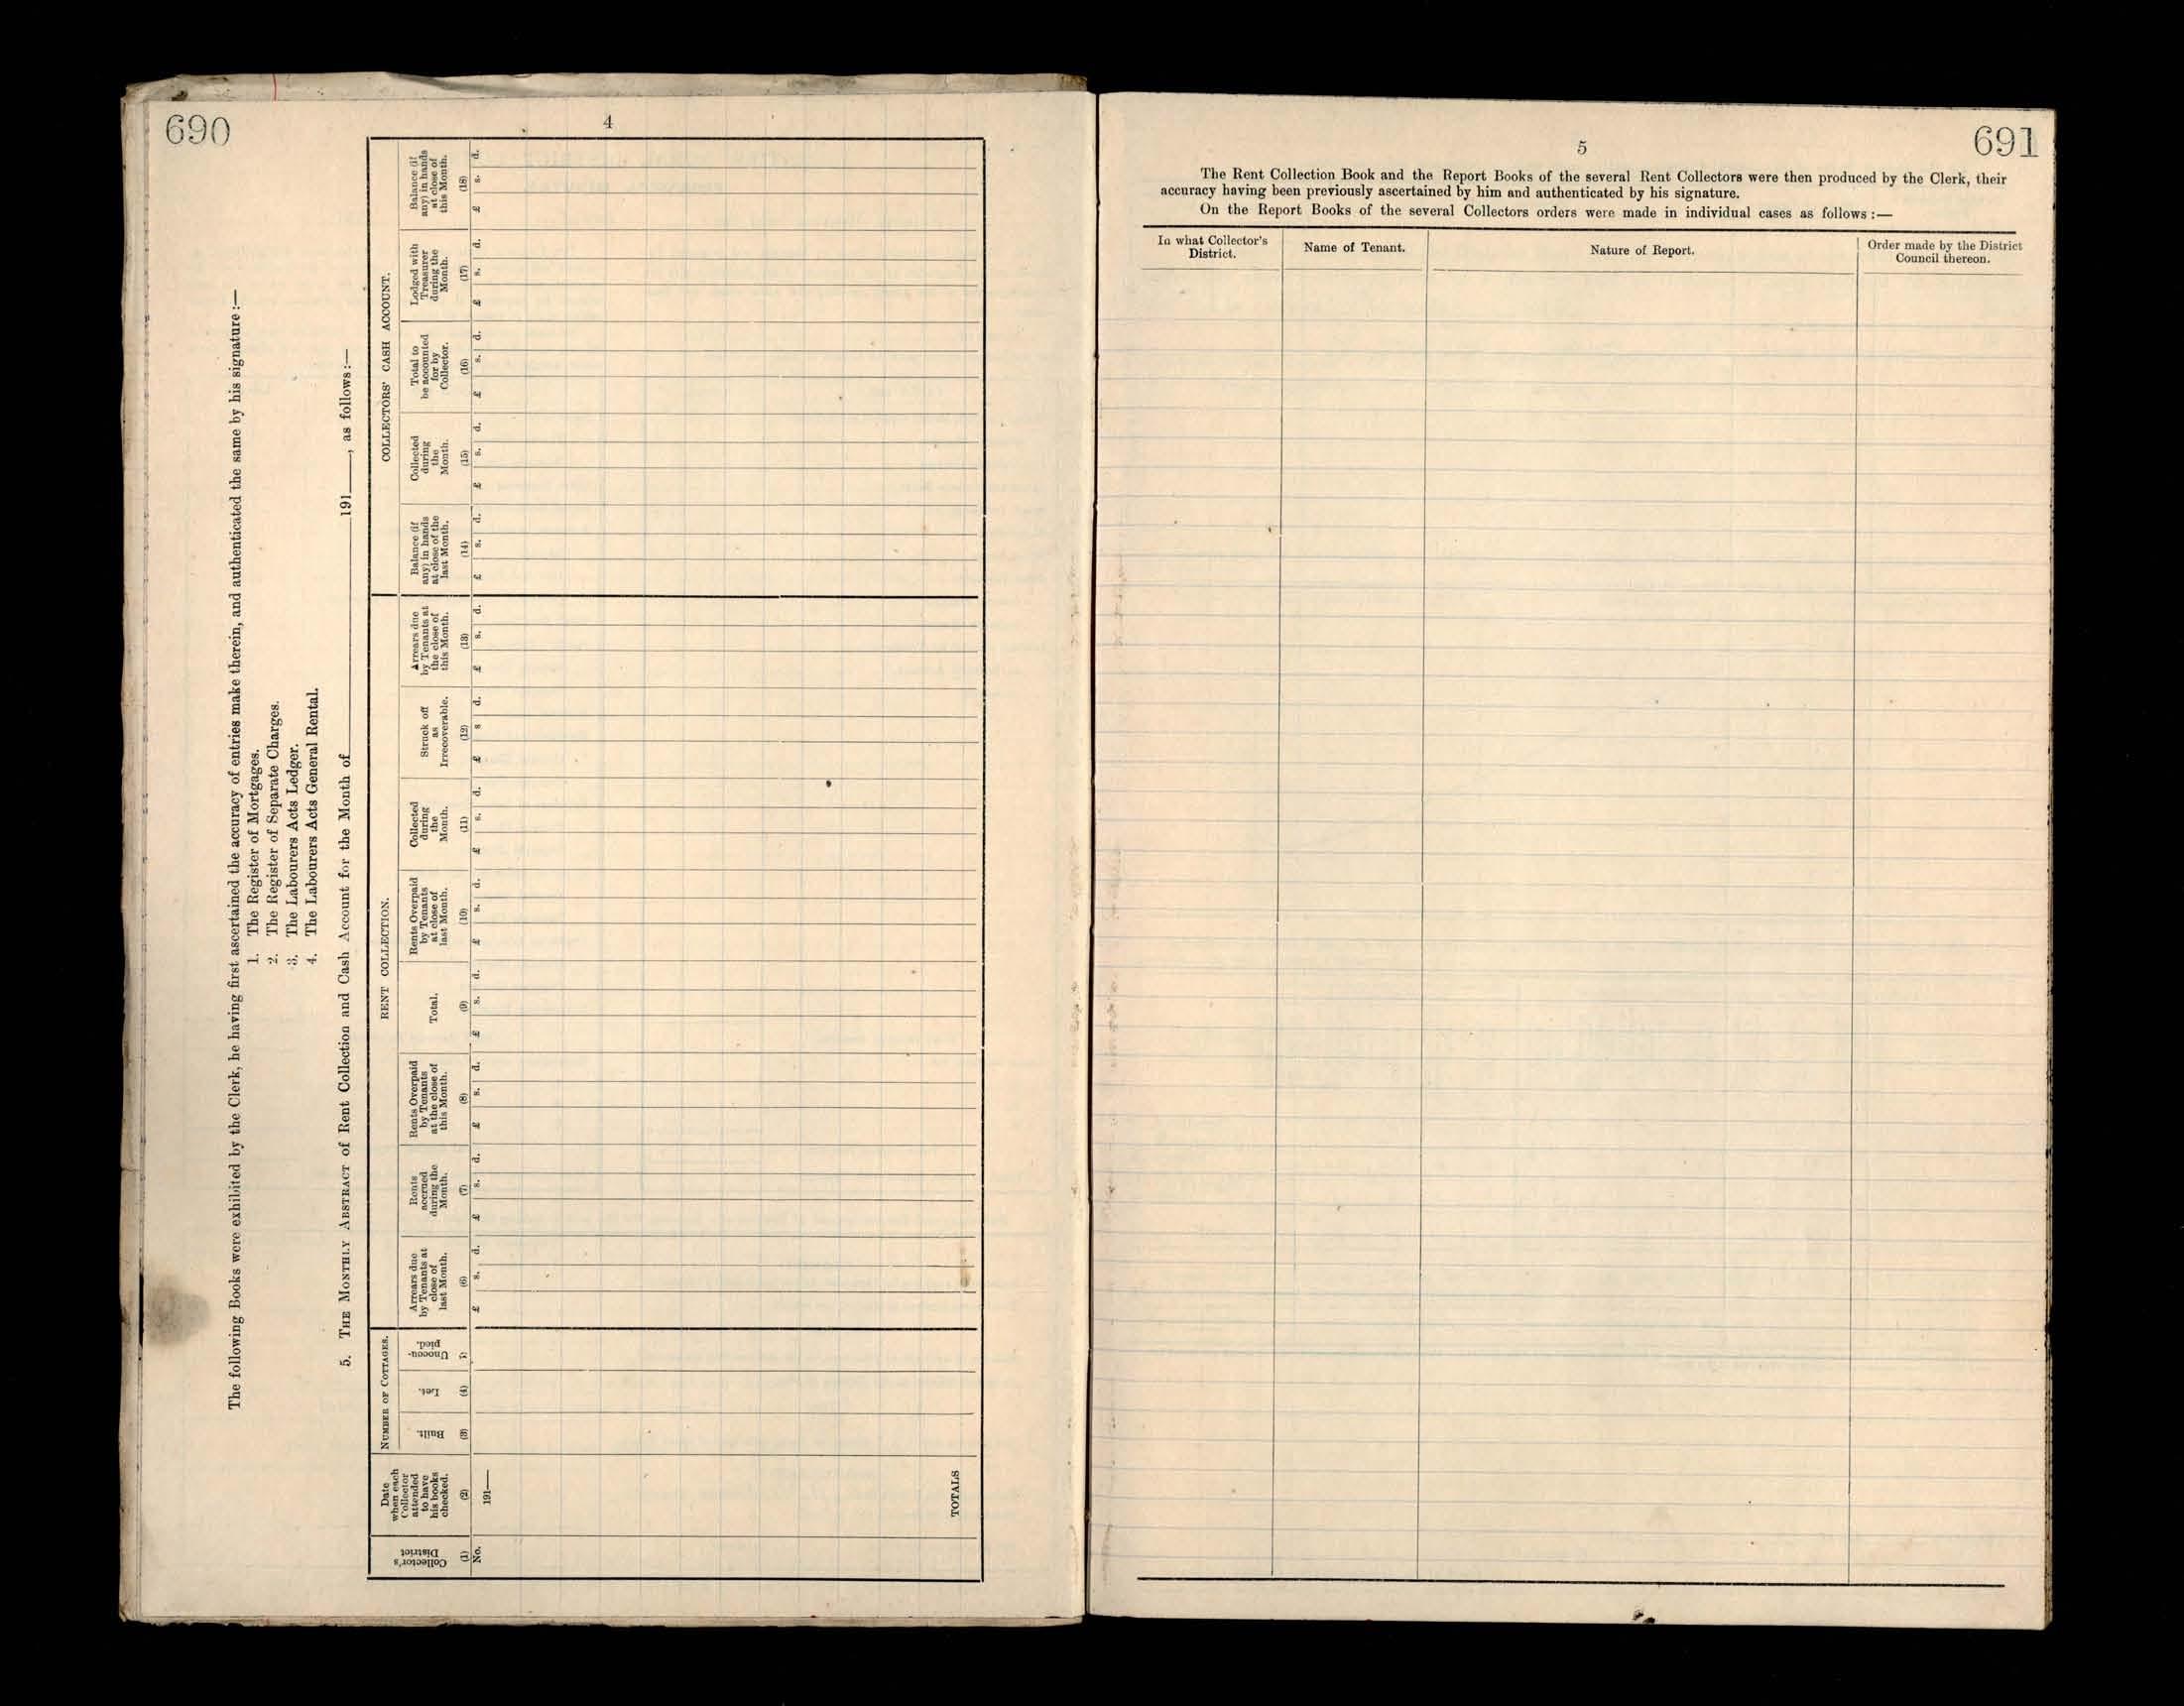 690
4
The following Books were exhibited by the Clerk, he having first ascertained the accuracy of entries make therein, and authenticated the same by his signature :—
1. The Register of Mortgages.
2. The Register of Separate Charges.
3. The Labourers Acts Ledger.
4. The Labourers Acts General Rental.
5. THE MONTHLY ABSTRACT of Rent Collection and Cash Account for the Month of 191 , as follows :—
NUMBER OF COTTAGES.
RENT COLLECTION.
COLLECTORS' CASH ACCOUNT.
Collector's
District
(1)
Date
when each
Collector
attended
to have
his books
checked.
(2)
Built.
(3)
Let.
(4)
Unoccu-
pied.
Arrears due
by Tenants at
close of
last Month.
(6)
Rents
accrued
during the
Month.
(7)
Rents Overpaid
by Tenants
at the close of
this Month.
(8)
Total.
(9)
Rents Overpaid
by Tenants
at close of
last Month.
(10)
Collected
during
the
Month.
(11)
Struck off
as
Irrecoverable.
(12)
Arrears due
by Tenants at
the close of
this Month.
(13)
Balance (if
any) in hands
at close of the
last Month.
(14)
Collected
during
the
Month.
(15)
Total to
be accounted
for by
Collector.
(16)
Lodged with
Treasurer
during the
Month.
(17)
Balance (if
any) in hands
at close of
this Month.
(18)
No.
191—
£ s. d. £ s. d. £ s. d. £ s. d. £ s. d. £ s. d. £ s d. £ s. d. £ s. d. £ s. d. £ s. d. £ s. d. £ s. d.
TOTALS
691
5
The Rent Collection Book and the Report Books of the several Rent Collectors were then produced by the Clerk, their
accuracy having been previously ascertained by him and authenticated by his signature.
On the Report Books of the several Collectors orders were made in individual cases as follows :—
In what Collector's
District.
Name of Tenant.
Nature of Report.
Order made by the District
Council thereon.